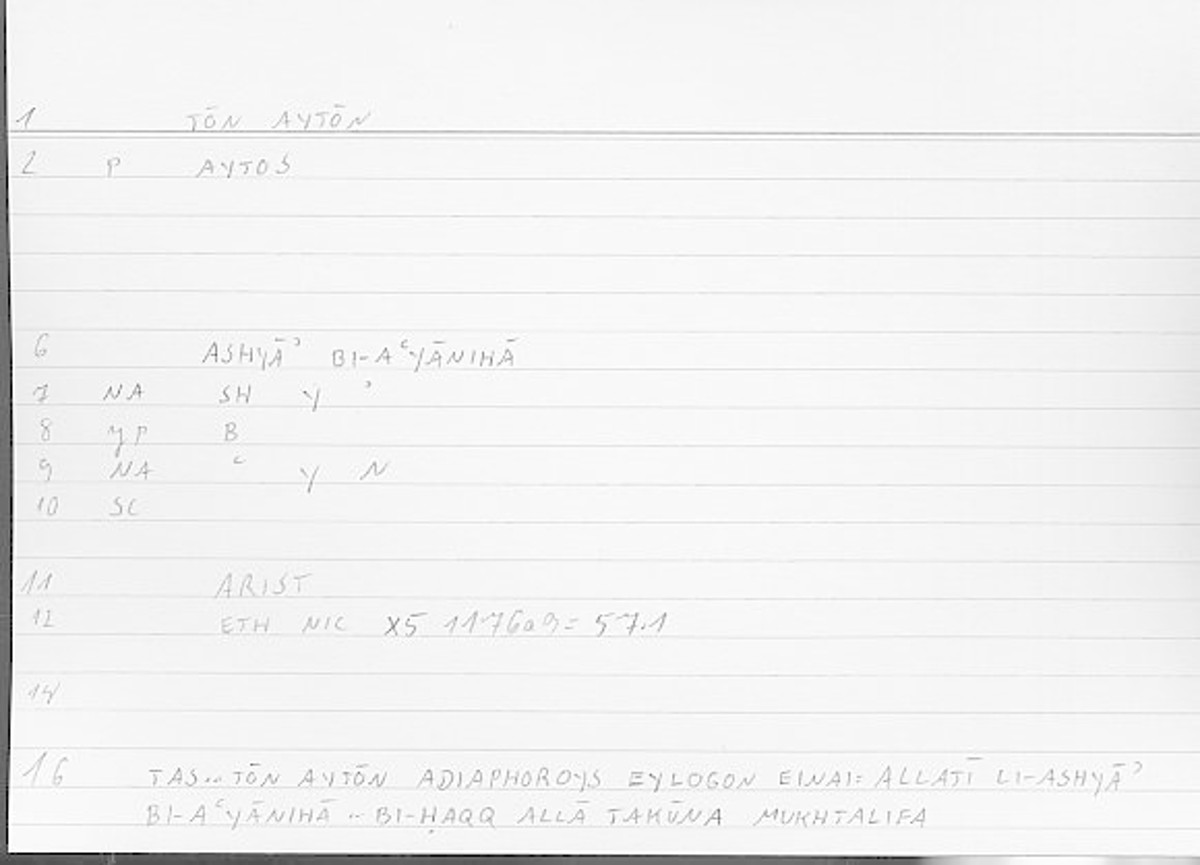 1 TŌN AYTŌN
2 P AYTOS
6 ASHYĀʾ BI-AʿYĀNIHĀ
7 NA SH Y ʾ
8 yP B
9 NA ʿ Y N
10 SC
11 ARIST
12 ETH NIC X5 1176a9= 57.1
14
16 TAS.. TŌN AYTŌN ADIAPHOROYS EYLOGON EINAI= ALLATĪ LI-ASHYĀʾ
BI-AʿYĀNIHĀ .. BI-ḤAQQ ALLĀ TAKŪNA MUKHTALIFA